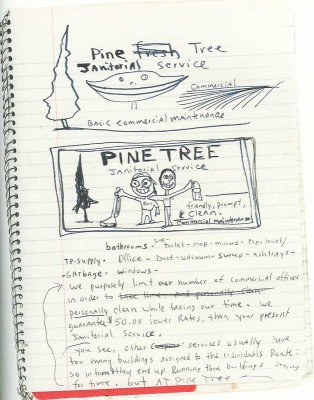 Pine fresh Tree
Janitorial Service
Commercial
Basic commercial maintenance
PINE TREE
Janitorial Service
friendly, prompt,
& clean.
Commercial maintenance
bathrooms - sink - toilet - mop - mirrors -
TP-supply. Office - Dust - vacuum - sweep - ashtrays -
-Garbage - windows -
We purposely limit our number of commercial offices
in order to take time and personally clean
personally clean while taking our time. We
guarantee $50.00 lower Rates, than your present
Janitorial Service.
you see, other services usually have
too many buildings assigned to the individuals Route:
so in turn they end up Running thru buildings
for time. but AT Pine Tree